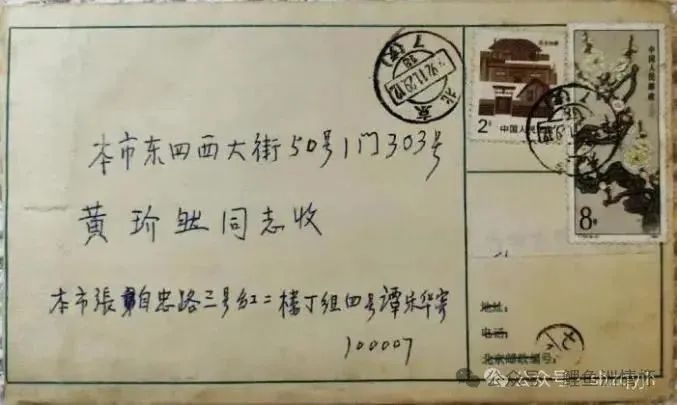 北京
1992.11.29.12
7(支)
2分
中国人民邮政
中国人民邮政
8分
本市东四西大街50号1门303号
黄珍然同志收
本市張自忠路三号红二楼丁组四号譚宗华寄
100007
地址:
电话:
北京邮政编号:
公众号·鲤鱼洲情怀
公众号